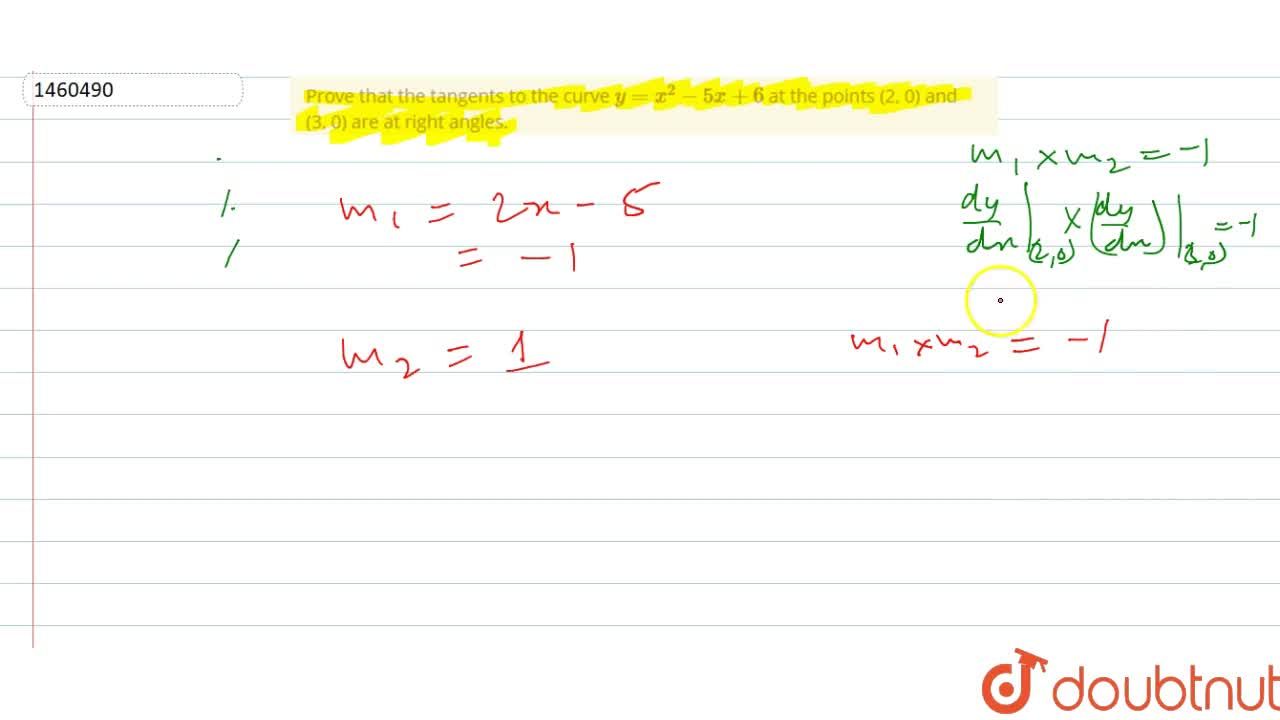 1460490
Prove that the tangents to the curve y = x² − 5x + 6 at the points (2, 0) and
(3, 0) are at right angles.
m₁ × m₂ = −1
dy/dx|(2,0) × (dy/dx)|(3,0) = −1
m₁ = 2x − 5
= −1
m₂ = 1
m₁ × m₂ = −1
doubtnut